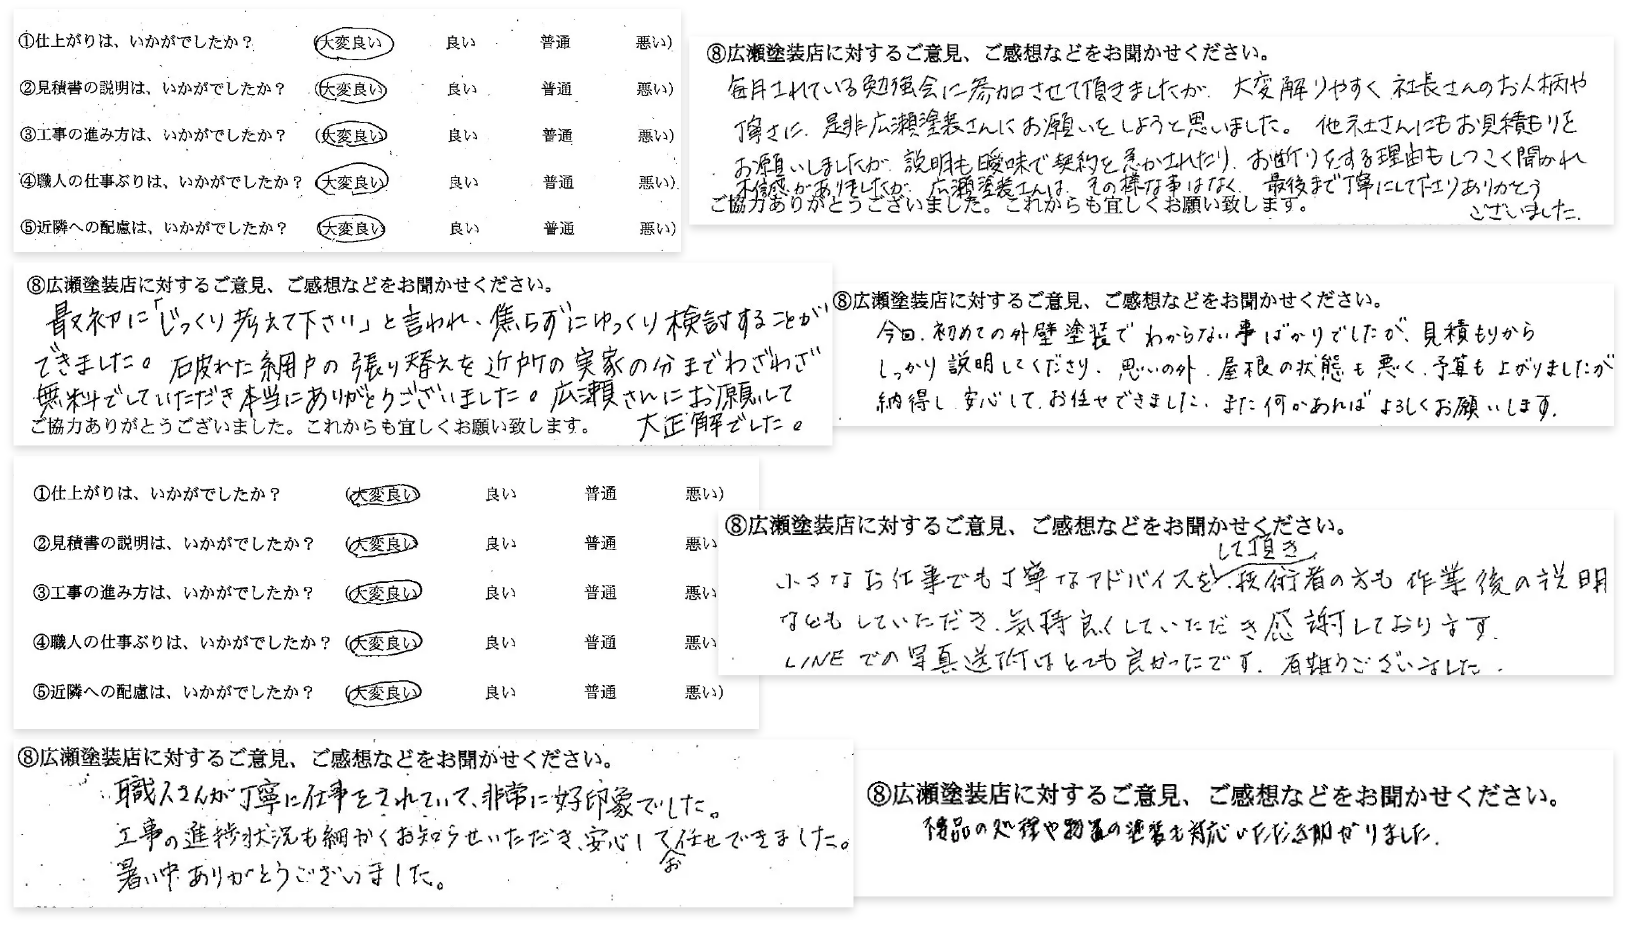 ①仕上がりは、いかがでしたか？ (大変良い 良い 普通 悪い)
②見積書の説明は、いかがでしたか？ (大変良い 良い 普通 悪い)
③工事の進み方は、いかがでしたか？ (大変良い 良い 普通 悪い)
④職人の仕事ぶりは、いかがでしたか？ (大変良い 良い 普通 悪い)
⑤近隣への配慮は、いかがでしたか？ (大変良い 良い 普通 悪い)
⑧広瀬塗装店に対するご意見、ご感想などをお聞かせください。
毎月されている勉強会に参加させて頂きましたが、大変解りやすく社長さんのお人柄や
丁寧さに、是非広瀬塗装さんにお願いをしようと思いました。他社さんにもお見積もりを
お願いしましたが、説明も曖昧で契約を急かされたり、お断りをする理由もしつこく聞かれ
不信感がありましたが、広瀬塗装さんは、その様な事はなく、最後まで丁寧にして下さりありがとう
ございました。
ご協力ありがとうございました。これからも宜しくお願い致します。
⑧広瀬塗装店に対するご意見、ご感想などをお聞かせください。
最初に「じっくり考えて下さい」と言われ、焦らずにゆっくり検討することが
できました。破れた網戸の張り替えを近所の実家の分までわざわざ
無料でしていただき本当にありがとうございました。広瀬さんにお願いして
大正解でした。
ご協力ありがとうございました。これからも宜しくお願い致します。
⑧広瀬塗装店に対するご意見、ご感想などをお聞かせください。
今回、初めての外壁塗装でわからない事ばかりでしたが、見積もりから
しっかり説明してくださり、思いの外、屋根の状態も悪く、予算も上がりましたが
納得し、安心して、お任せできました。また何かあればよろしくお願いします。
①仕上がりは、いかがでしたか？ (大変良い 良い 普通 悪い)
②見積書の説明は、いかがでしたか？ (大変良い 良い 普通 悪い
③工事の進み方は、いかがでしたか？ (大変良い 良い 普通 悪い
④職人の仕事ぶりは、いかがでしたか？ (大変良い 良い 普通 悪い
⑤近隣への配慮は、いかがでしたか？ (大変良い 良い 普通 悪い)
⑧広瀬塗装店に対するご意見、ご感想などをお聞かせください。
小さなお仕事でも丁寧なアドバイスをして頂き、技術者の方も作業後の説明
などもしていただき、気持良くしていただき感謝しております。
LINEでの写真送付はとても良かったです。有難うございました。
⑧広瀬塗装店に対するご意見、ご感想などをお聞かせください。
職人さんが丁寧に仕事をされていて、非常に好印象でした。
工事の進捗状況も細かくお知らせいただき、安心してお任せできました。
暑い中ありがとうございました。
⑧広瀬塗装店に対するご意見、ご感想などをお聞かせください。
の処理や物置の塗装も対応いただき助かりました。